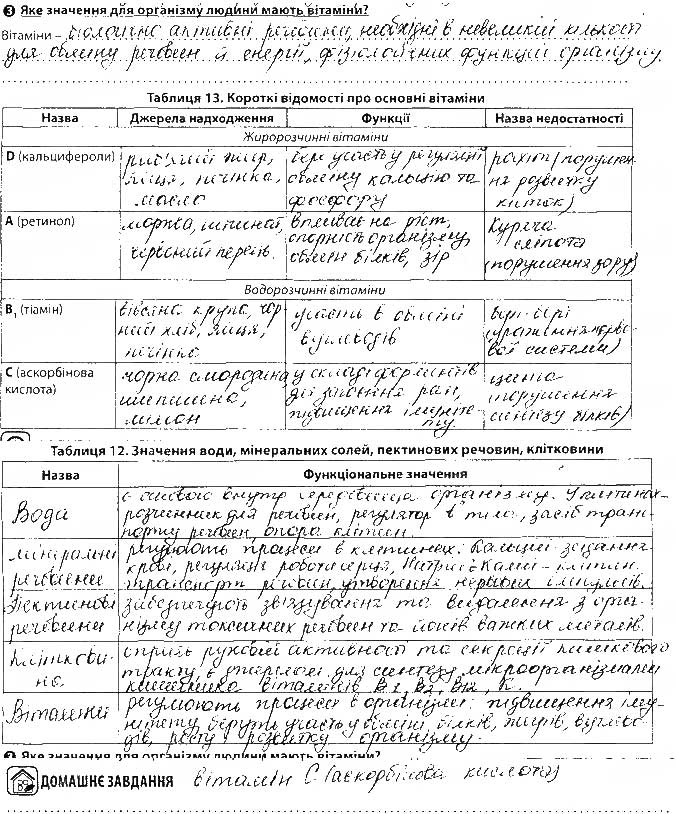 ❸ Яке значення для організму людини мають вітаміни?
Вітаміни – біологічно активні речовини, необхідні в невеликій кількості
для обміну речовин й енергії, фізіологічних функцій організму.
Таблиця 13. Короткі відомості про основні вітаміни
Назва Джерела надходження Функції Назва недостатності
Жиророзчинні вітаміни
D (кальцифероли) риб'ячий жир, бере участь у регуляції рахіт (порушен-
яйця, печінка, обміну кальцію та ня розвитку
масло фосфору кісток)
А (ретинол) морква, шпинат, впливає на ріст, Куряча
червоний перець. опорність організму, сліпота
обмін білків, зір (порушення зору)
Водорозчинні вітаміни
В₁ (тіамін) вівсяна крупа, чор- участь в обміні бері-бері
ний хліб, яйця, вуглеводів (ураження нерво-
печінка вої системи)
С (аскорбінова чорна смородина, у складі ферментів цинга
кислота) шипшина, дії загоєння ран, (порушення
лимон підвищення імуніте- синтезу білків)
ту
Таблиця 12. Значення води, мінеральних солей, пектинових речовин, клітковини
Назва Функціональне значення
Вода є основою внутр середовища організму. У клітинах-
розчинник для речовин, регулятор t° тіла, засіб транс-
порту речовин, опора клітин.
мінеральні регулюють процеси в клітинах: Кальцій-зсідання
речовини крові, регуляція роботи серця, Натрій і Калій – клітин.
транспорт речовин, утворення нервових імпульсів.
Пектинові забезпечують зв'язування та видалення з орга-
речовини нізму токсичних речовин та йонів важких металів.
Кліткови- сприяє руховій активності та секреції кишкового
на тракту, є джерелом для синтезу мікроорганізмами
кишківника вітамінів В₁, В₂, В₁₂, К.
Вітаміни регулюють процеси в організмі: підвищення іму-
нітету, беруть участь у обміні білків, жирів, вуглево-
дів, росту і розвитку організму.
❸ Яке значення для організму людини мають вітаміни?
ДОМАШНЄ ЗАВДАННЯ вітамін С (аскорбінова кислота)